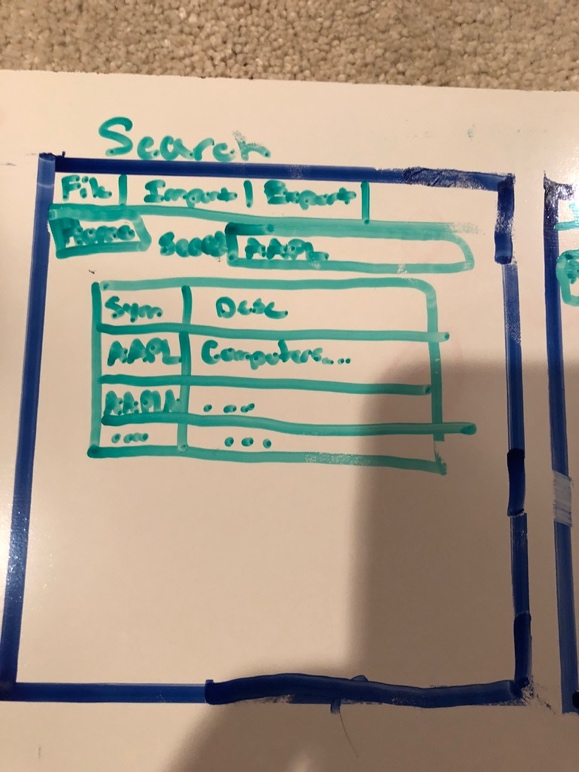 Search
File | Import | Export
Home Search AAPL
Sym Desc.
AAPL Computers...
....
... ...